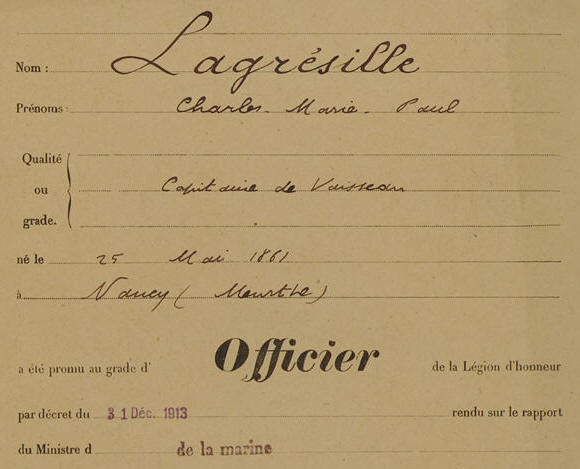 Nom : Lagrésille
Prénoms : Charles - Marie - Paul
Qualité
ou Capitaine de Vaisseau
grade.
né le 25 Mai 1861
à Nancy (Meurthe)
a été promu au grade d' Officier de la Légion d'honneur
par décret du 31 Déc. 1913 rendu sur le rapport
du Ministre d de la marine